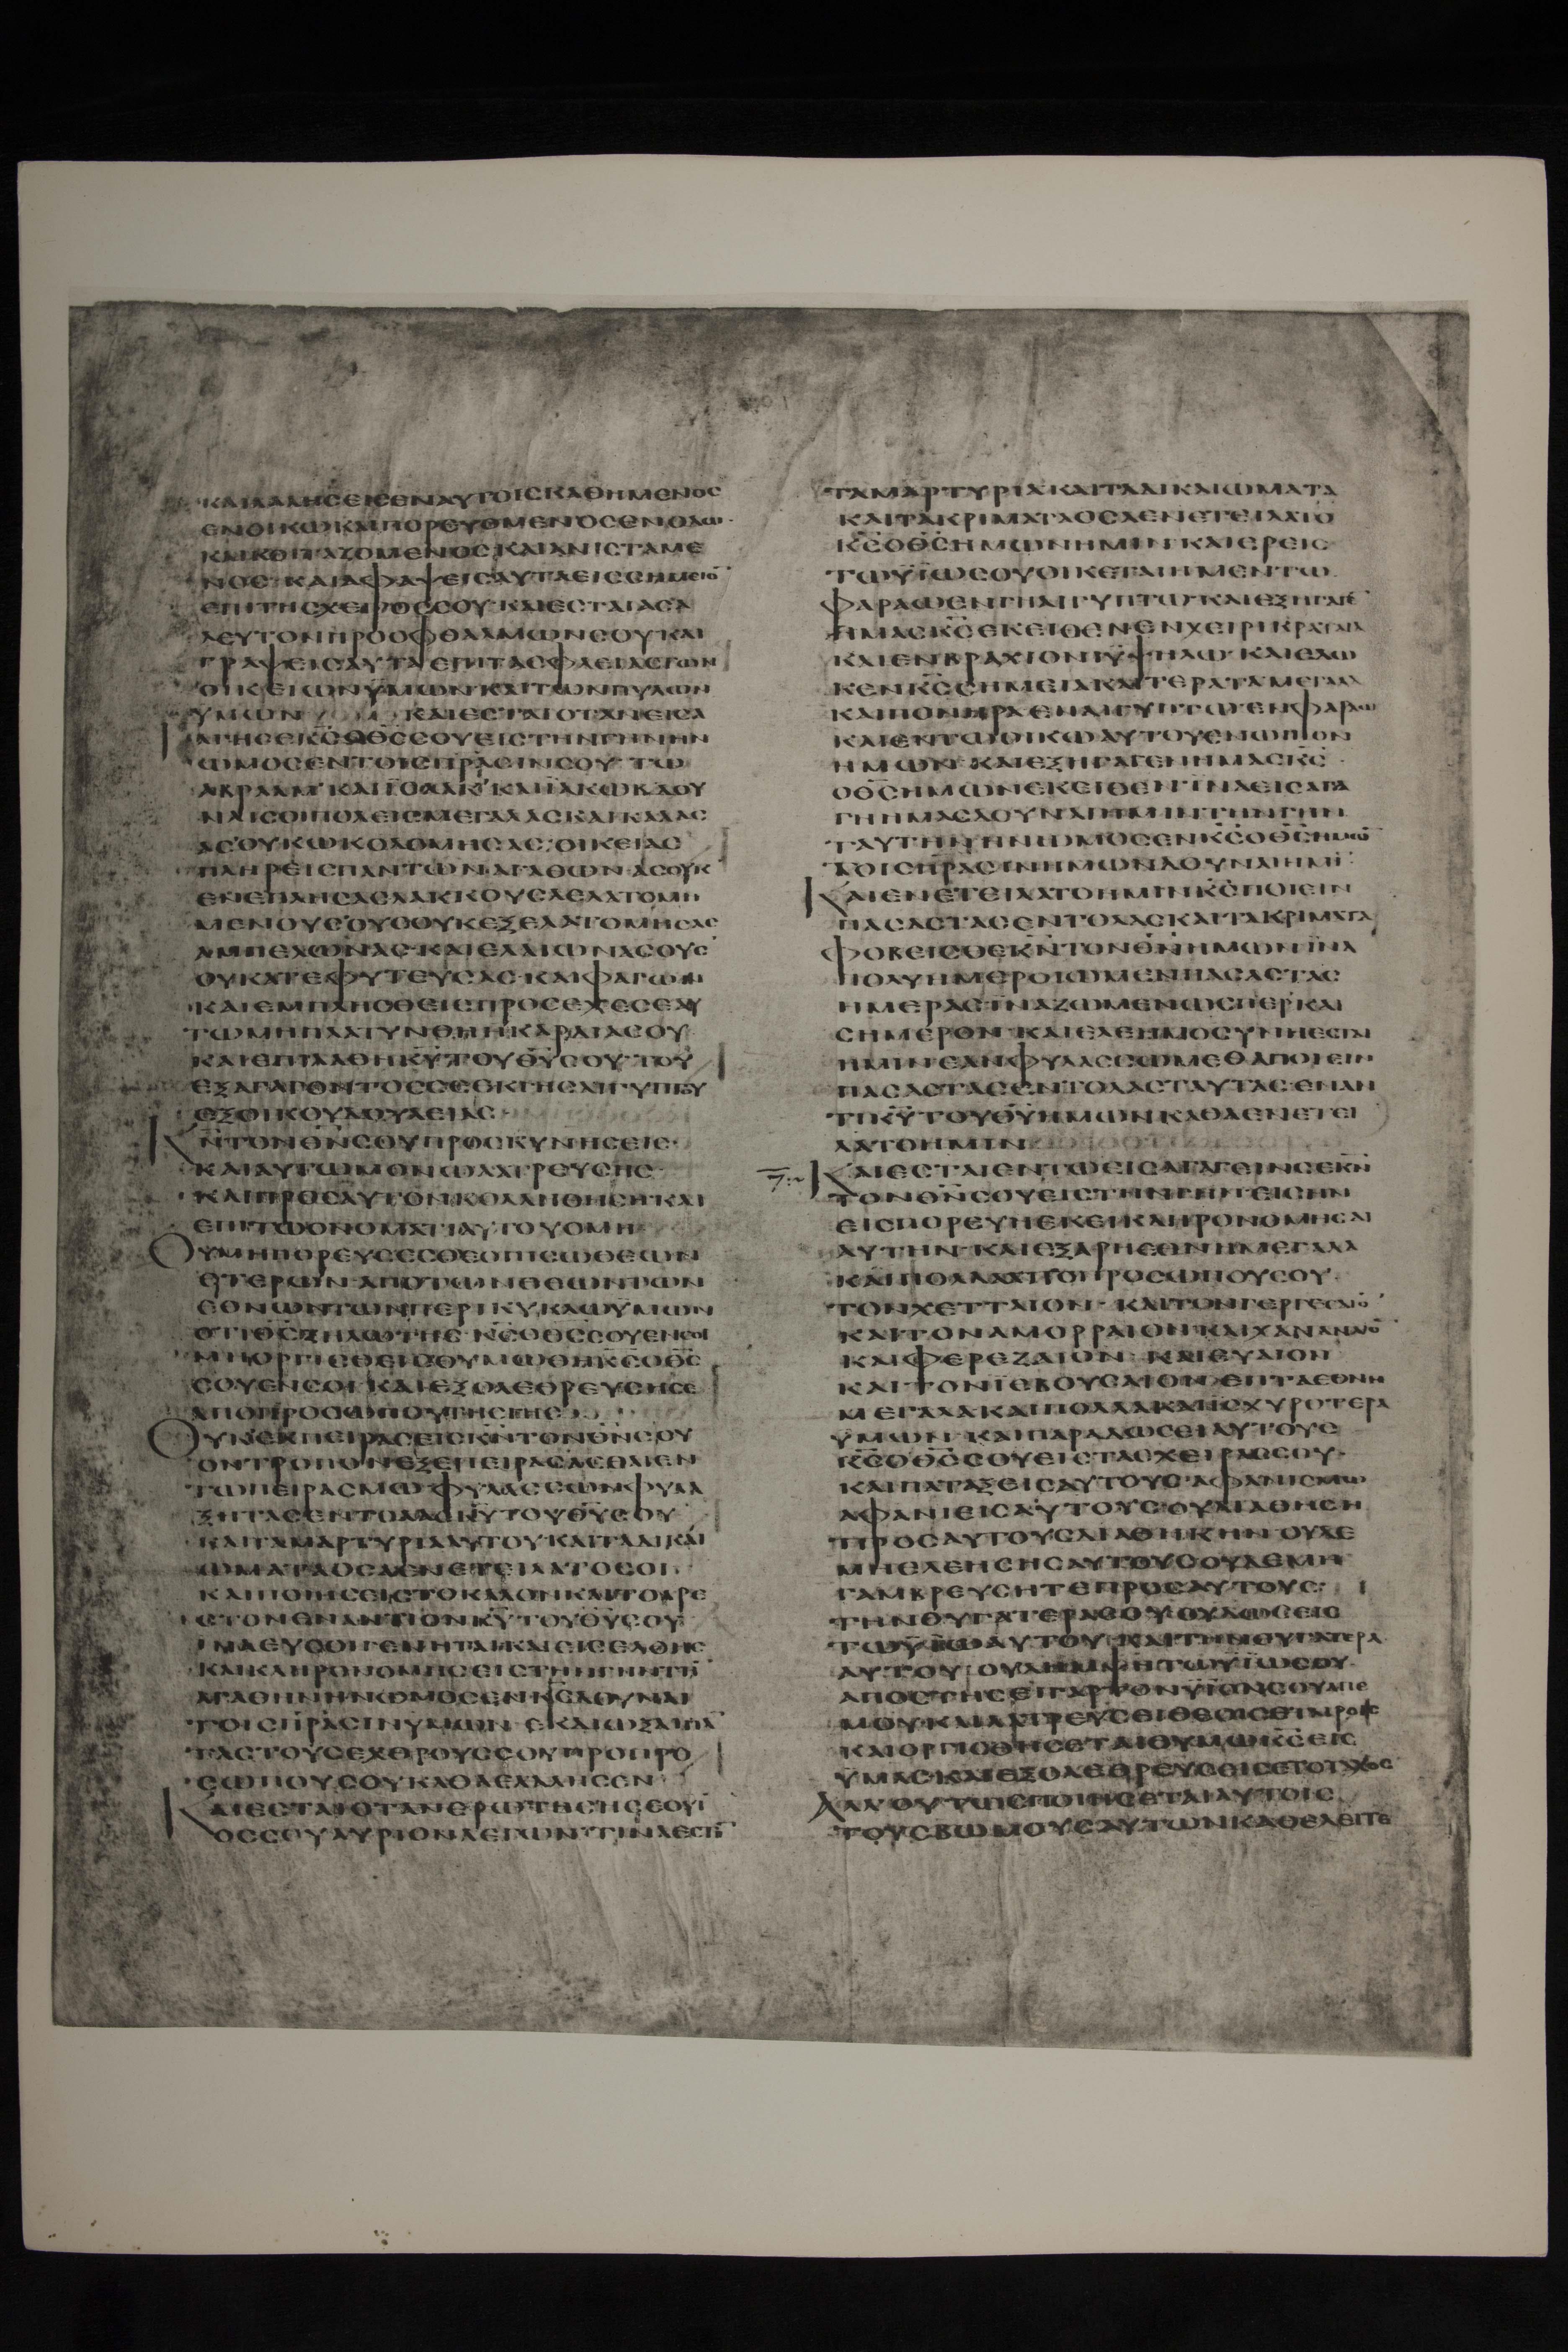 ΚΑΙΛΑΛΗΣΕΙΣΕΝΑΥΤΟΙΣΚΑΘΗΜΕΝΟΣ
ΕΝΟΙΚΩΚΑΙΠΟΡΕΥΟΜΕΝΟΣΕΝΟΔΩ·
ΚΑΙΚΟΙΤΑΖΟΜΕΝΟΣΚΑΙΑΝΙΣΤΑΜΕ
ΝΟΣ·ΚΑΙΑΦΑΨΕΙΣΑΥΤΑΕΙΣΣΗΜΕΙΟ̅
ΕΠΙΤΗΣΧΕΙΡΟΣΣΟΥ·ΚΑΙΕΣΤΑΙΑΣΑ
ΛΕΥΤΟΝΠΡΟΟΦΘΑΛΜΩΝΣΟΥΚΑΙ
ΓΡΑΨΕΙΣΑΥΤΑΕΠΙΤΑΣΦΛΕΙΑΣΤΩΝ
ΟΙΚΕΙΩΝΫΜΩΝΚΑΙΤΩΝΠΥΛΩΝ
ΫΜΩΝ ΚΑΙΕΣΤΑΙΟΤΑΝΕΙΣΑ
ΑΓΗΣΕΚ̅Σ̅ΟΘ̅Σ̅ΣΟΥΕΙΣΤΗΝΓΗΝΗΝ
ΩΜΟΣΕΝΤΟΙΣΠ̅Ρ̅ΑΣΙΝΣΟΥ·ΤΩ
ΑΒΡΑΑΜ·ΚΑΙΪΣΑΑΚ·ΚΑΙΪΑΚΩΒΔΟΥ
ΝΑΙΣΟΙΠΟΛΕΙΣΜΕΓΑΛΑΣΚΑΙΚΑΛΑΣ
ΑΣΟΥΚΩΚΟΔΟΜΗΣΑΣ·ΟΙΚΕΙΑΣ
ΠΛΗΡΕΙΣΠΑΝΤΩΝΑΓΑΘΩΝΑΣΟΥΚ
ΕΝΕΠΛΗΣΑΣΛΑΚΚΟΥΣΛΕΛΑΤΟΜΗ
ΜΕΝΟΥΣΟΥΣΟΥΚΕΞΕΛΑΤΟΜΗΣΑΣ
ΑΜΠΕΛΩΝΑΣ·ΚΑΙΕΛΑΙΩΝΑΣΟΥΣ
ΟΥΚΑΤΕΦΥΤΕΥΣΑΣ·ΚΑΙΦΑΓΩΝ
ΚΑΙΕΜΠΛΗΣΘΕΙΣΠΡΟΣΕΧΕΣΕΑΥ
ΤΩΜΗΠΛΑΤΥΝΘΗΗΚΑΡΔΙΑΣΟΥ
ΚΑΙΕΠΙΛΑΘΗΚ̅Υ̅ΤΟΥΘ̅Υ̅ΣΟΥ·ΤΟΥ
ΕΞΑΓΑΓΟΝΤΟΣΣΕΕΚΓΗΣΑΙΓΥΠΤΟΥ
ΕΞΟΙΚΟΥΔΟΥΛΕΙΑΣ·
Κ̅Ν̅ΤΟΝΘ̅Ν̅ΣΟΥΠΡΟΣΚΥΝΗΣΕΙΣ·
ΚΑΙΑΥΤΩΜΟΝΩΛΑΤΡΕΥΣΗΣ
ΚΑΙΠΡΟΣΑΥΤΟΝΚΟΛΛΗΘΗΣΗΚΑΙ
ΕΠΙΤΩΟΝΟΜΑΤΙΑΥΤΟΥΟΜΗ
ΟΥΜΗΠΟΡΕΥΣΕΣΘΕΟΠΙΣΩΘΕΩΝ
ΕΤΕΡΩΝ·ΑΠΟΤΩΝΘΕΩΝΤΩΝ
ΕΘΝΩΝΤΩΝΠΕΡΙΚΥΚΛΩΥΜΩΝ
ΟΤΙΘ̅Σ̅ΖΗΛΩΤΗΣ·Κ̅Σ̅ΟΘ̅Σ̅ΣΟΥΕΝΣΟΙ
ΜΗΟΡΓΙΣΘΕΙΣΘΥΜΩΘΗΚ̅Σ̅ΟΘ̅Σ̅
ΣΟΥΕΝΣΟΙ·ΚΑΙΕΞΟΛΕΘΡΕΥΣΗΣΕ
ΑΠΟΠΡΟΣΩΠΟΥΤΗΣΓΗΣ
ΟΥΚΕΚΠΕΙΡΑΣΕΙΣΚ̅Ν̅ΤΟΝΘ̅Ν̅ΣΟΥ
ΟΝΤΡΟΠΟΝΕΞΕΠΕΙΡΑΣΑΣΘΑΙΕΝ
ΤΩΠΕΙΡΑΣΜΩΦΥΛΑΣΣΩΝΦΥΛΑ
ΞΗΤΑΣΕΝΤΟΛΑΣΚ̅Υ̅ΤΟΥΘ̅Υ̅ΣΟΥ
ΚΑΙΤΑΜΑΡΤΥΡΙΑΑΥΤΟΥΚΑΙΤΑΔΙΚΑΙ
ΩΜΑΤΑΟΣΑΕΝΕΤΕΙΛΑΤΟΣΟΙ·
ΚΑΙΠΟΙΗΣΕΙΣΤΟΚΑΛΟΝΚΑΙΤΟΑΡΕ
ΣΤΟΝΕΝΑΝΤΙΟΝΚ̅Υ̅ΤΟΥΘ̅Υ̅ΣΟΥ
ΙΝΑΕΥΣΟΙΓΕΝΗΤΑΙΚΑΙΕΙΣΕΛΘΗΣ
ΚΑΙΚΛΗΡΟΝΟΜΗΣΕΙΣΤΗΝΓΗΝΤΗ̅
ΑΓΑΘΗΝΗΝΩΜΟΣΕΝΚ̅Σ̅ΔΟΥΝΑΙ
ΤΟΙΣΠ̅Ρ̅ΑΣΙΝΥΜΩΝ·ΕΚΔΙΩΞΑΙΠΑ̅
ΤΑΣΤΟΥΣΕΧΘΡΟΥΣΣΟΥΠΡΟΠΡΟ
ΣΩΠΟΥΣΟΥΚΑΘΑΕΛΑΛΗΣΕΝ
ΚΑΙΕΣΤΑΙΟΤΑΝΕΡΩΤΗΣΗΣΕΟΥΪ
ΟΣΣΟΥΑΥΡΙΟΝΛΕΓΩΝ·ΤΙΝΑΕΣΤΙ̅
ΤΑΜΑΡΤΥΡΙΑΚΑΙΤΑΔΙΚΑΙΩΜΑΤΑ
ΚΑΙΤΑΚΡΙΜΑΤΑΟΣΑΕΝΕΤΕΙΛΑΤΟ
Κ̅Σ̅ΟΘ̅Σ̅ΗΜΩΝΗΜΙΝ·ΚΑΙΕΡΕΙΣ
ΤΩΫΪΩΣΟΥΟΙΚΕΤΑΙΗΜΕΝΤΩ
ΦΑΡΑΩΕΝΓΗΑΙΓΥΠΤΩ·ΚΑΙΕΞΗΓΑΓΕ̅
ΗΜΑΣΚ̅Σ̅ΕΚΕΙΘΕΝΕΝΧΕΙΡΙΚΡΑΤΑΙΑ
ΚΑΙΕΝΒΡΑΧΙΟΝΙΫΨΗΛΩ·ΚΑΙΕΔΩ
ΚΕΝΚ̅Σ̅ΣΗΜΕΙΑΚΑΙΤΕΡΑΤΑΜΕΓΑΛΑ
ΚΑΙΠΟΝΗΡΑΕΝΑΙΓΥΠΤΩ·ΕΝΦΑΡΑΩ
ΚΑΙΕΝΤΩΟΙΚΩΑΥΤΟΥΕΝΩΠΙΟΝ
ΗΜΩΝ·ΚΑΙΕΞΗΓΑΓΕΝΗΜΑΣΚ̅Σ̅
ΟΘ̅Σ̅ΗΜΩΝΕΚΕΙΘΕΝΪΝΑΕΙΣΑΓΑ
ΓΗΗΜΑΣΔΟΥΝΑΙΗΜΙΝΤΗΝΓΗΝ
ΤΑΥΤΗΝΗΝΩΜΟΣΕΝΚ̅Σ̅ΟΘ̅Σ̅ΗΜΩ̅
ΤΟΙΣΠ̅Ρ̅ΑΣΙΝΗΜΩΝΔΟΥΝΑΙΗΜΙ̅
ΚΑΙΕΝΕΤΕΙΛΑΤΟΗΜΙΝΚ̅Σ̅ΠΟΙΕΙΝ
ΠΑΣΑΣΤΑΣΕΝΤΟΛΑΣΚΑΙΤΑΚΡΙΜΑΤΑ
ΦΟΒΕΙΣΘΕΚ̅Ν̅ΤΟΝΘ̅Ν̅ΗΜΩΝΪΝΑ
ΠΟΛΥΗΜΕΡΟΙΩΜΕΝΠΑΣΑΣΤΑΣ
ΗΜΕΡΑΣ·ΪΝΑΖΩΜΕΝΩΣΠΕΡΚΑΙ
ΣΗΜΕΡΟΝ·ΚΑΙΕΛΕΗΜΟΣΥΝΗΕΣΤΑΙ
ΗΜΙΝΕΑΝΦΥΛΑΣΣΩΜΕΘΑΠΟΙΕΙΝ
ΠΑΣΑΣΤΑΣΕΝΤΟΛΑΣΤΑΥΤΑΣΕΝΑΝ
ΤΙΚ̅Υ̅ΤΟΥΘ̅Υ̅ΗΜΩΝΚΑΘΑΕΝΕΤΕΙ
ΛΑΤΟΗΜΙΝ
ΚΑΙΕΣΤΑΙΕΝΤΩΕΙΣΑΓΑΓΕΙΝΣΕΚ̅Ν̅
ΤΟΝΘ̅Ν̅ΣΟΥΕΙΣΤΗΝΓΗΝΕΙΣΗΝ
ΕΙΣΠΟΡΕΥΗΕΚΕΙΚΛΗΡΟΝΟΜΗΣΑΙ
ΑΥΤΗΝ·ΚΑΙΕΞΑΡΗΕΘΝΗΜΕΓΑΛΑ
ΚΑΙΠΟΛΛΑΑΠΟΠΡΟΣΩΠΟΥΣΟΥ·
ΤΟΝΧΕΤΤΑΙΟΝ·ΚΑΙΤΟΝΓΕΡΓΕΣΑΙΟ̅
ΚΑΙΤΟΝΑΜΟΡΡΑΙΟΝ·ΚΑΙΧΑΝΑΝΑΙΟ̅
ΚΑΙΦΕΡΕΖΑΙΟΝ·ΚΑΙΕΥΑΙΟΝ
ΚΑΙΤΟΝΪΕΒΟΥΣΑΙΟΝ·ΕΠΤΑΕΘΝΗ
ΜΕΓΑΛΑΚΑΙΠΟΛΛΑΚΑΙΪΣΧΥΡΟΤΕΡΑ
ΫΜΩΝ·ΚΑΙΠΑΡΑΔΩΣΕΙΑΥΤΟΥΣ
Κ̅Σ̅ΟΘ̅Σ̅ΣΟΥΕΙΣΤΑΣΧΕΙΡΑΣΣΟΥ·
ΚΑΙΠΑΤΑΞΕΙΣΑΥΤΟΥΣ·ΑΦΑΝΙΣΜΩ
ΑΦΑΝΙΕΙΣΑΥΤΟΥΣ·ΟΥΔΙΑΘΗΣΗ
ΠΡΟΣΑΥΤΟΥΣΔΙΑΘΗΚΗΝ·ΟΥΔΕ
ΜΗΕΛΕΗΣΗΣΑΥΤΟΥΣΟΥΔΕΜΗ
ΓΑΜΒΡΕΥΣΗΤΕΠΡΟΣΑΥΤΟΥΣ·
ΤΗΝΘΥΓΑΤΕΡΑΣΟΥΟΥΔΩΣΕΙΣ
ΤΩΫΪΩΑΥΤΟΥ·ΚΑΙΤΗΝΘΥΓΑΤΕΡΑ
ΑΥΤΟΥ·ΟΥΛΗΜΨΗΤΩΥΪΩΣΟΥ·
ΑΠΟΣΤΗΣΕΙΓΑΡΤΟΝΥΪΟΝΣΟΥΑΠΕ
ΜΟΥΚΑΙΛΑΤΡΕΥΣΕΙΘΕΟΙΣΕΤΕΡΟΙΣ
ΚΑΙΟΡΓΙΣΘΗΣΕΤΑΙΘΥΜΩΚ̅Σ̅ΕΙΣ
ΫΜΑΣΚΑΙΕΞΟΛΕΘΡΕΥΣΕΙΣΕΤΟΤΑΧΟΣ
ΑΛΛΟΥΤΩΣΠΟΙΗΣΕΤΑΙΑΥΤΟΙΣ
ΤΟΥΣΒΩΜΟΥΣΑΥΤΩΝΚΑΘΕΛΕΙΤΕ